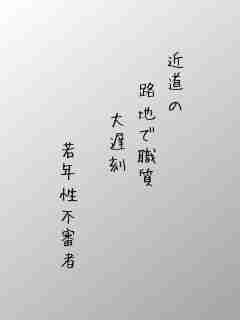 近道の
路地で職質
大遅刻
若年性不審者